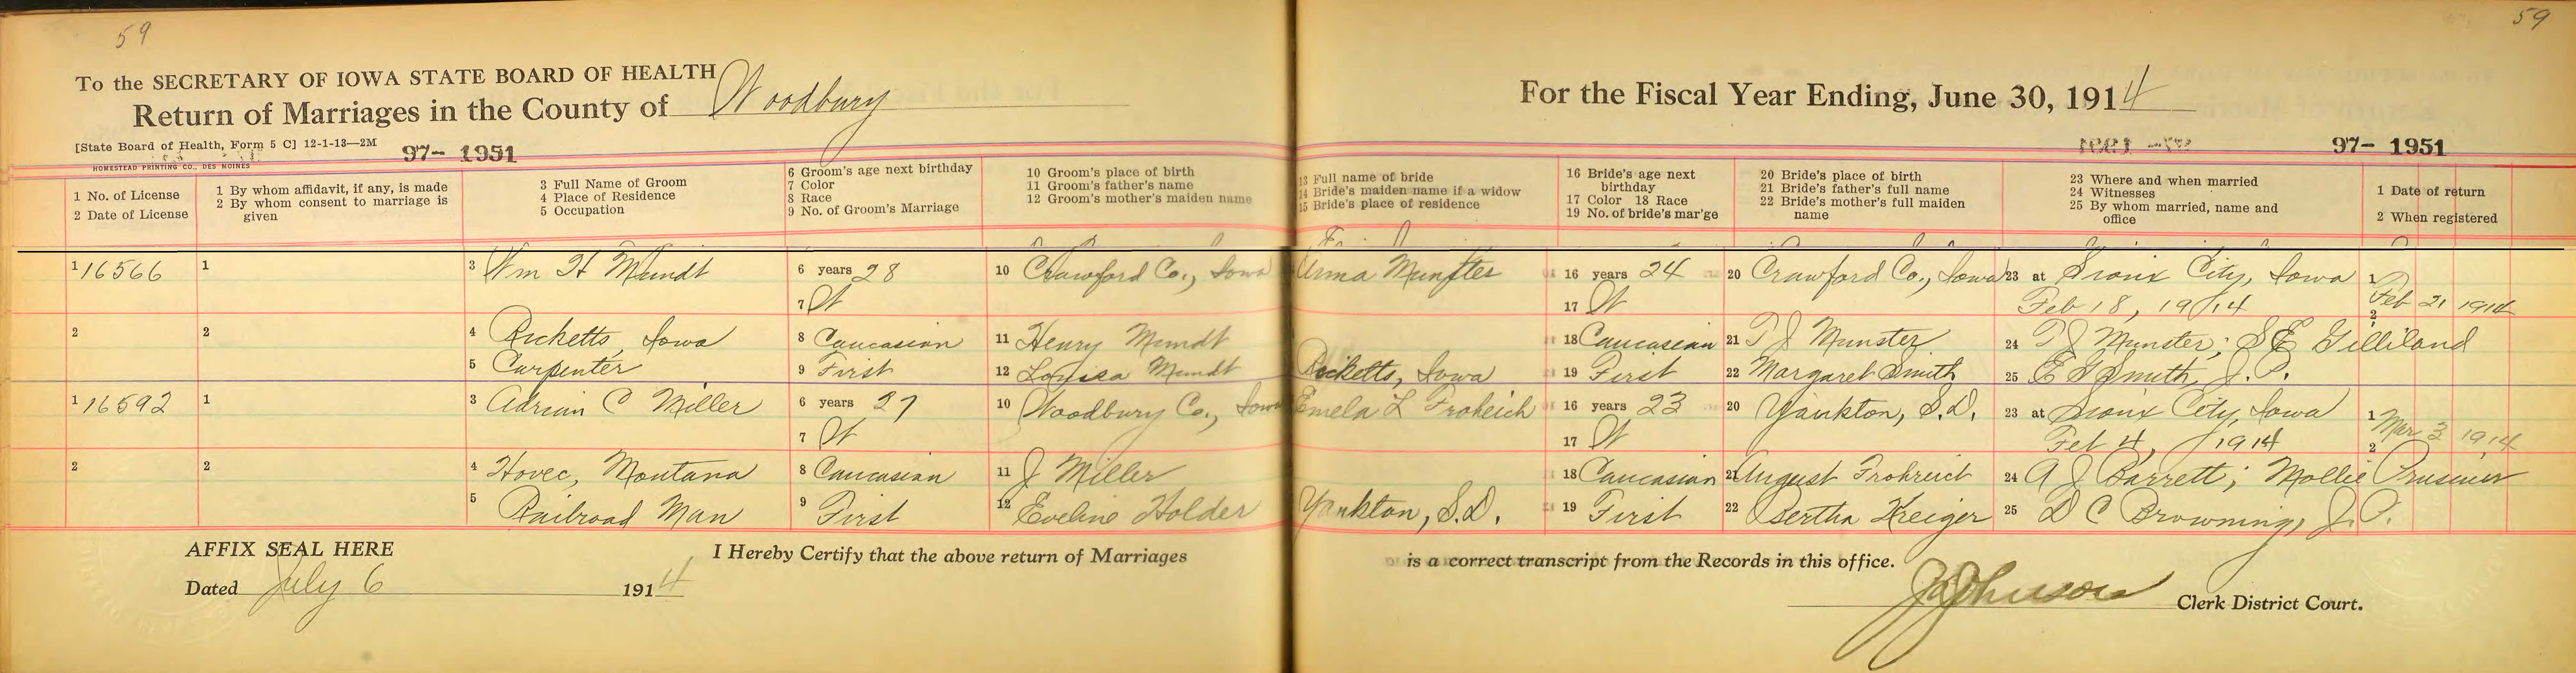 59
59
To the SECRETARY OF IOWA STATE BOARD OF HEALTH
Return of Marriages in the County of Woodbury
For the Fiscal Year Ending, June 30, 1914
[State Board of Health, Form 5 C] 12-1-13—2M
97- 1951
97- 1951
HOMESTEAD PRINTING CO., DES MOINES
1 No. of License
2 Date of License
1 By whom affidavit, if any, is made
2 By whom consent to marriage is given
3 Full Name of Groom
4 Place of Residence
5 Occupation
6 Groom's age next birthday
7 Color
8 Race
9 No. of Groom's Marriage
10 Groom's place of birth
11 Groom's father's name
12 Groom's mother's maiden name
13 Full name of bride
14 Bride's maiden name if a widow
15 Bride's place of residence
16 Bride's age next birthday
17 Color 18 Race
19 No. of bride's mar'ge
20 Bride's place of birth
21 Bride's father's full name
22 Bride's mother's full maiden name
23 Where and when married
24 Witnesses
25 By whom married, name and office
1 Date of return
2 When registered
1 16566 1 3 Wm H Mundt 6 years 28 10 Crawford Co., Iowa Anna Munster 16 years 24 20 Crawford Co., Iowa 23 at Sioux City, Iowa 1
7 W 17 W Feb 18, 1914 Feb 21 1914
2 2 4 Ricketts, Iowa 8 Caucasian 11 Henry Mundt 18 Caucasian 21 P J Munster 24 P J Munster; S E Gilliland 2
5 Carpenter 9 First 12 Louisa Mundt Ricketts, Iowa 19 First 22 Margaret Smith 25 E G Smith, J.P.
1 16592 1 3 Adrian C Miller 6 years 27 10 Woodbury Co., Iowa Emela L Froheich 16 years 23 20 Yankton, S.D. 23 at Sioux City, Iowa 1
7 W 17 W Feb 4, 1914 Mar 3 1914
2 2 4 Hovec, Montana 8 Caucasian 11 J Miller 18 Caucasian 21 August Frohreich 24 A J Barrett; Mollie 2
5 Railroad Man 9 First 12 Eveline Holder Yankton, S.D. 19 First 22 Bertha Kreiger 25 D C Browning, J.P.
AFFIX SEAL HERE
I Hereby Certify that the above return of Marriages is a correct transcript from the Records in this office.
Dated July 6 1914
Clerk District Court.